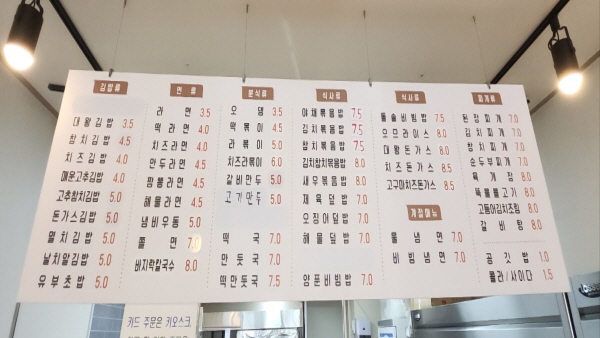 김밥류
대왕김밥 3.5
참치김밥 4.5
치즈김밥 4.0
매운고추김밥 4.0
고추참치김밥 5.0
돈가스김밥 5.0
멸치김밥 5.0
날치알김밥 5.0
유부초밥 5.0
면류
라면 3.5
떡라면 4.0
치즈라면 4.0
만두라면 4.5
짬뽕라면 4.5
해물라면 4.5
냄비우동 5.0
쫄면 7.0
바지락칼국수 8.0
분식류
오뎅 3.5
떡볶이 4.5
라볶이 5.0
치즈라볶이 6.0
갈비만두 5.0
고기만두 5.0
떡국 7.0
만둣국 7.0
떡만둣국 7.5
식사류
야채볶음밥 7.5
김치볶음밥 7.5
참치볶음밥 7.5
김치참치볶음밥 8.0
새우볶음밥 8.0
제육덮밥 7.0
오징어덮밥 7.0
해물덮밥 7.0
양푼비빔밥 7.0
식사류
돌솥비빔밥 7.5
오므라이스 8.0
대왕돈가스 8.0
치즈돈가스 8.5
고구마치즈돈가스 8.5
계절메뉴
물냉면 7.0
비빔냉면 7.0
찌개류
된장찌개 7.0
김치찌개 7.0
참치찌개 7.0
순두부찌개 7.0
육개장 8.0
뚝불불고기 8.0
고등어김치조림 8.0
갈비탕 8.0
공깃밥 1.0
콜라/사이다 1.5
카드 주문은 키오스크